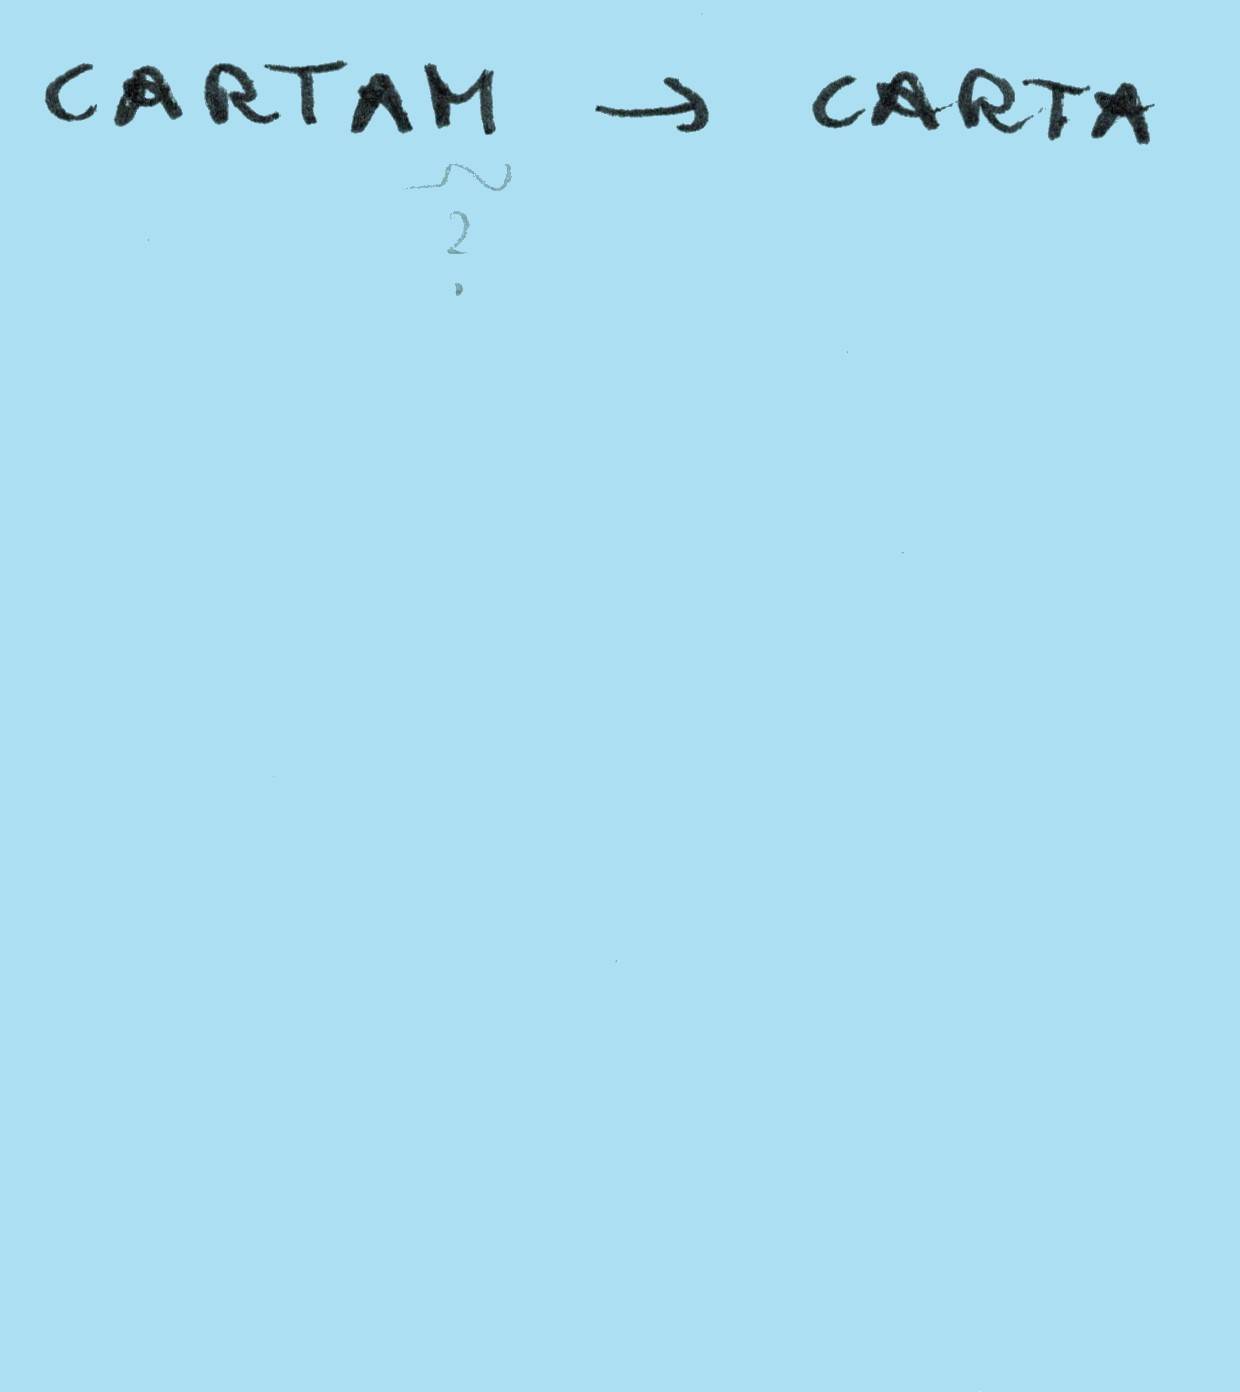 CARTAM → CARTA
?